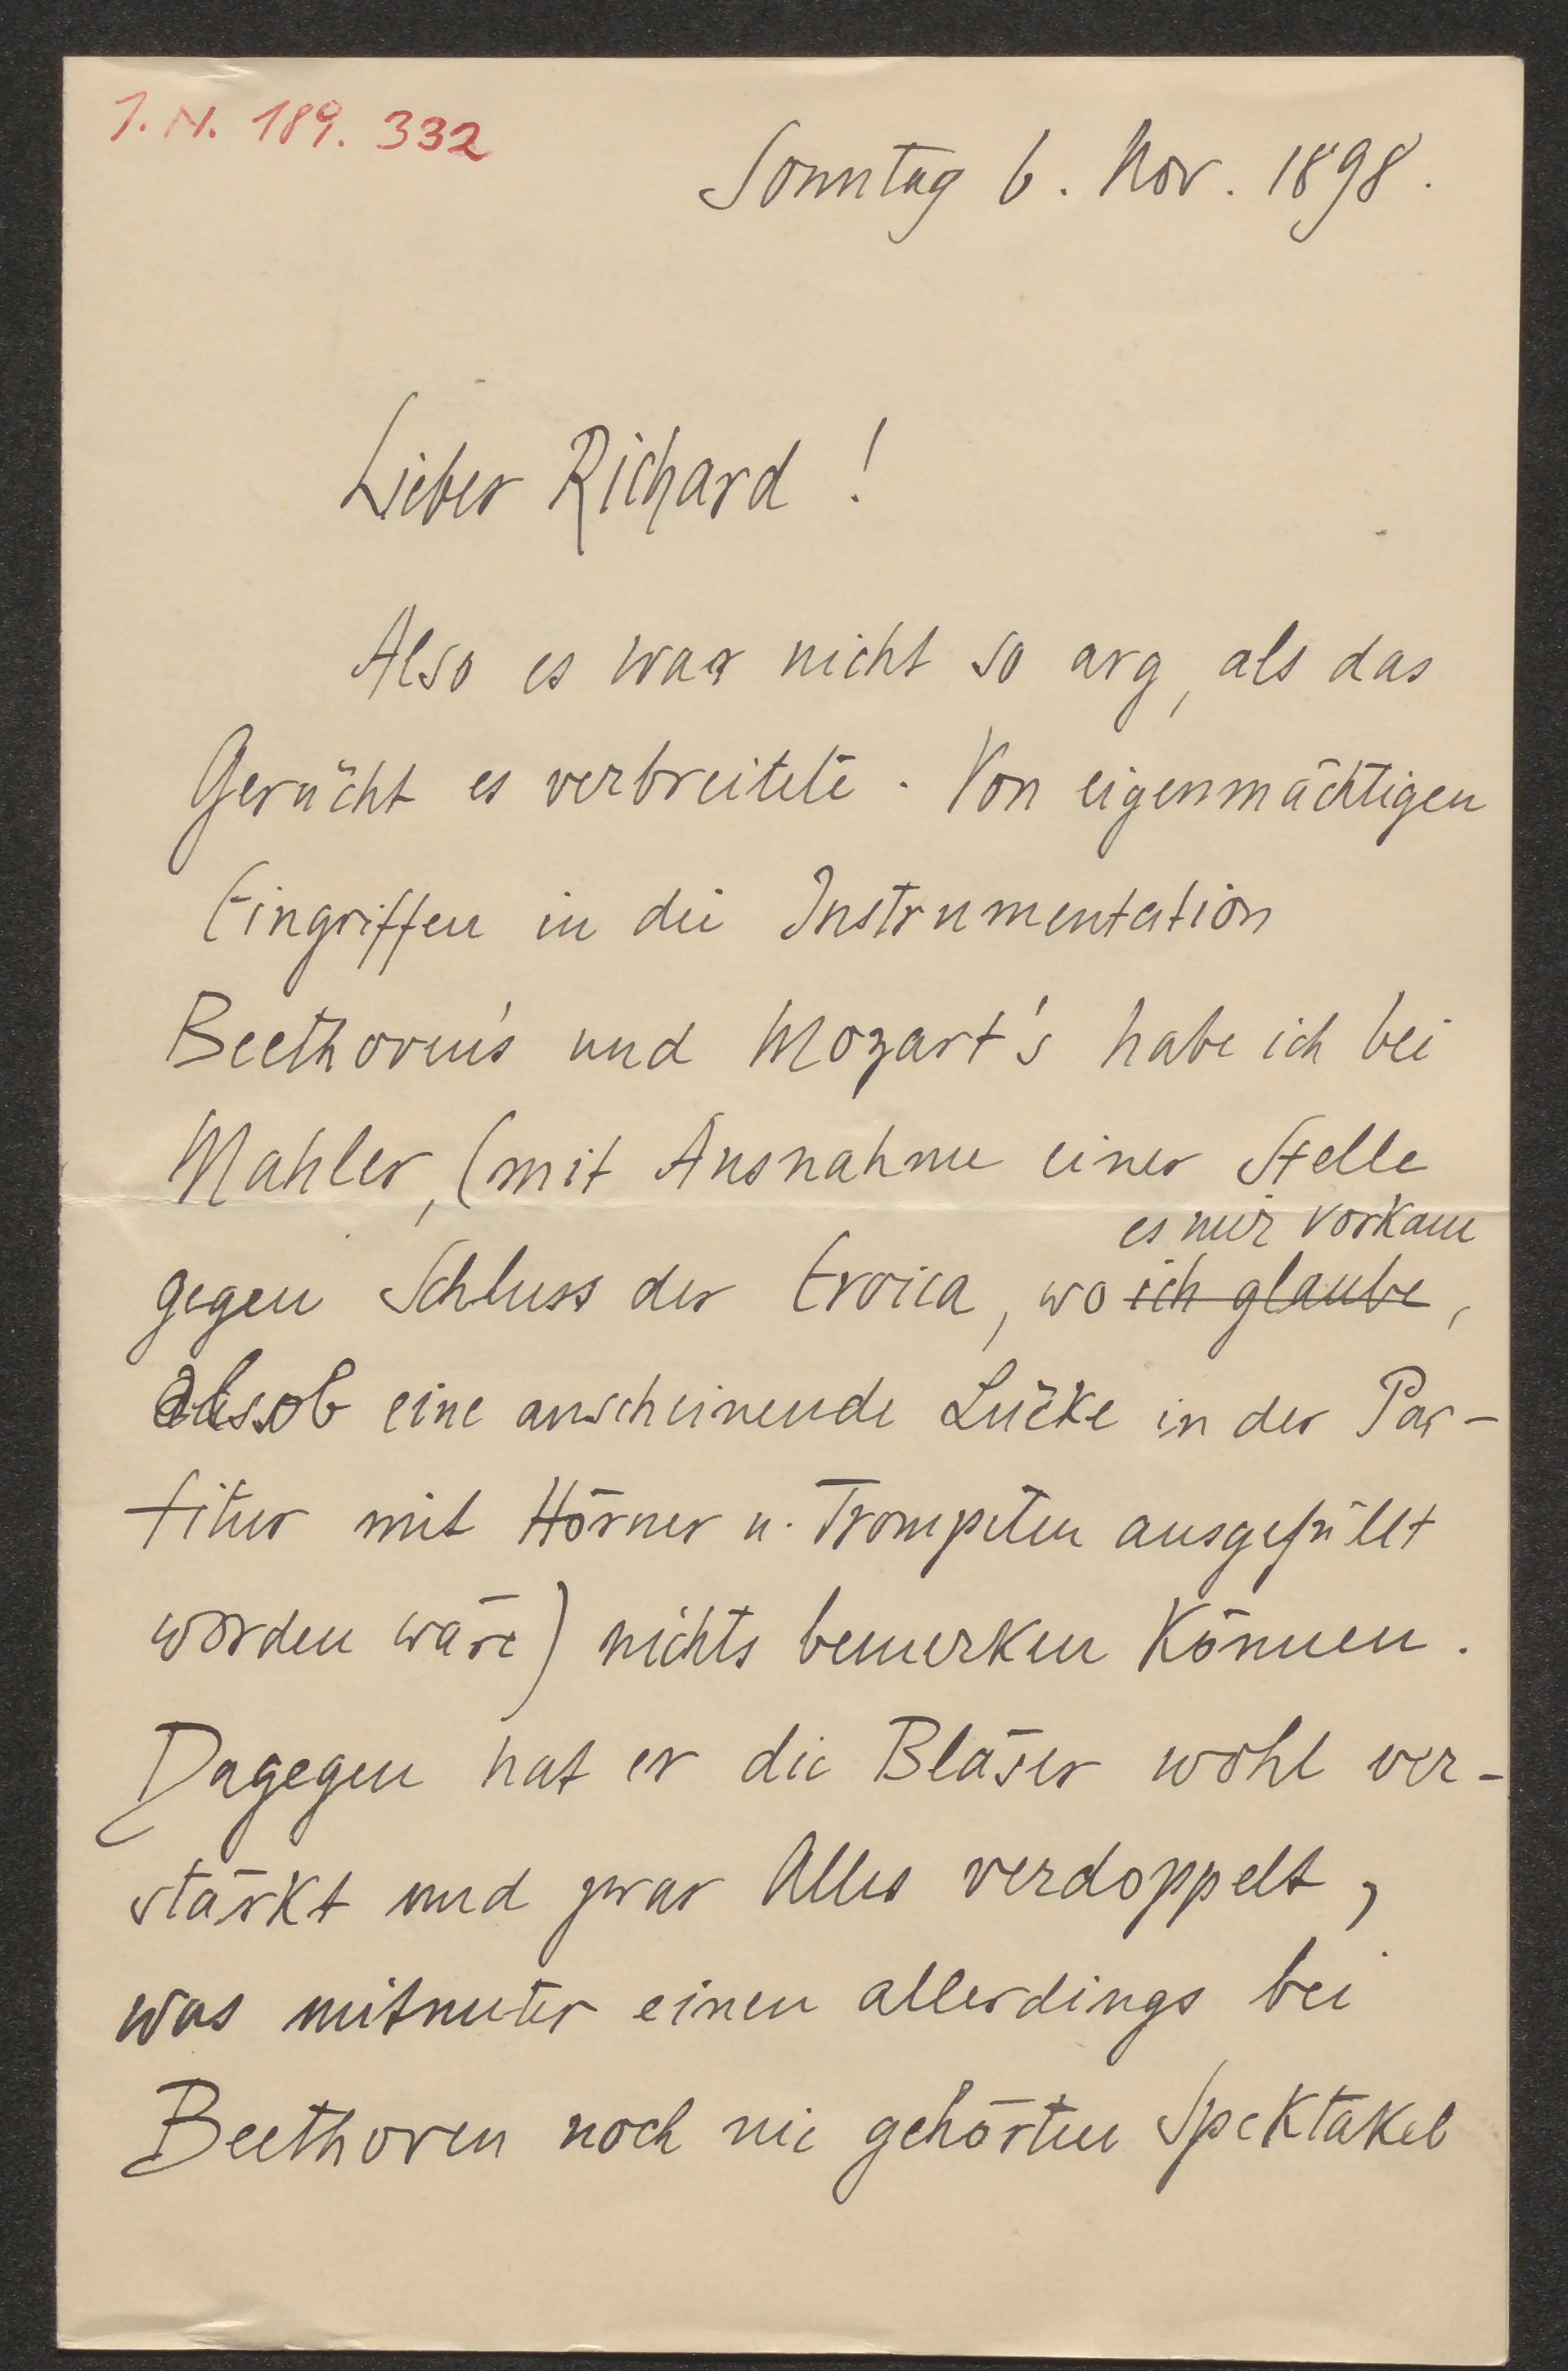 J. N. 189. 332
Sonntag 6. Nov. 1898.
Lieber Richard!
Also es war nicht so arg, als das
Gerücht es verbreitete. Von eigenmächtigen
Eingriffen in die Instrumentation
Beethoven's und Mozart's habe ich bei
Mahler, (mit Ausnahme einer Stelle
es mir vorkam
gegen Schluss der Eroica, wo ich glaube,
als ob eine anscheinende Lücke in der Par-
titur mit Hörner u. Trompeten ausgefüllt
worden wäre) nichts bemerken können.
Dagegen hat er die Bläser wohl ver-
stärkt und zwar Alles verdoppelt,
was mitunter einen allerdings bei
Beethoven noch nie gehörten Spektakel